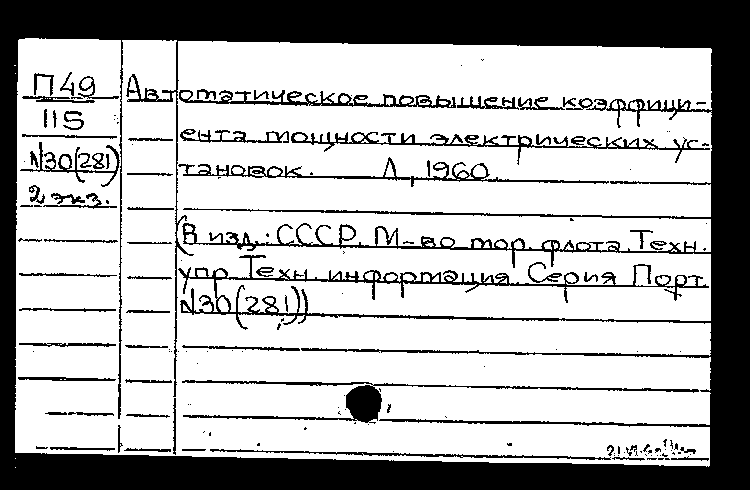 П49
115
N30(281)
2 экз.
Автоматическое повышение коэффици-
ента мощности электрических ус-
тановок. Л, 1960.
(В изд.: СССР. М-во мор. флота. Техн.
упр. Техн. информация. Серия Порт.
N30(281))